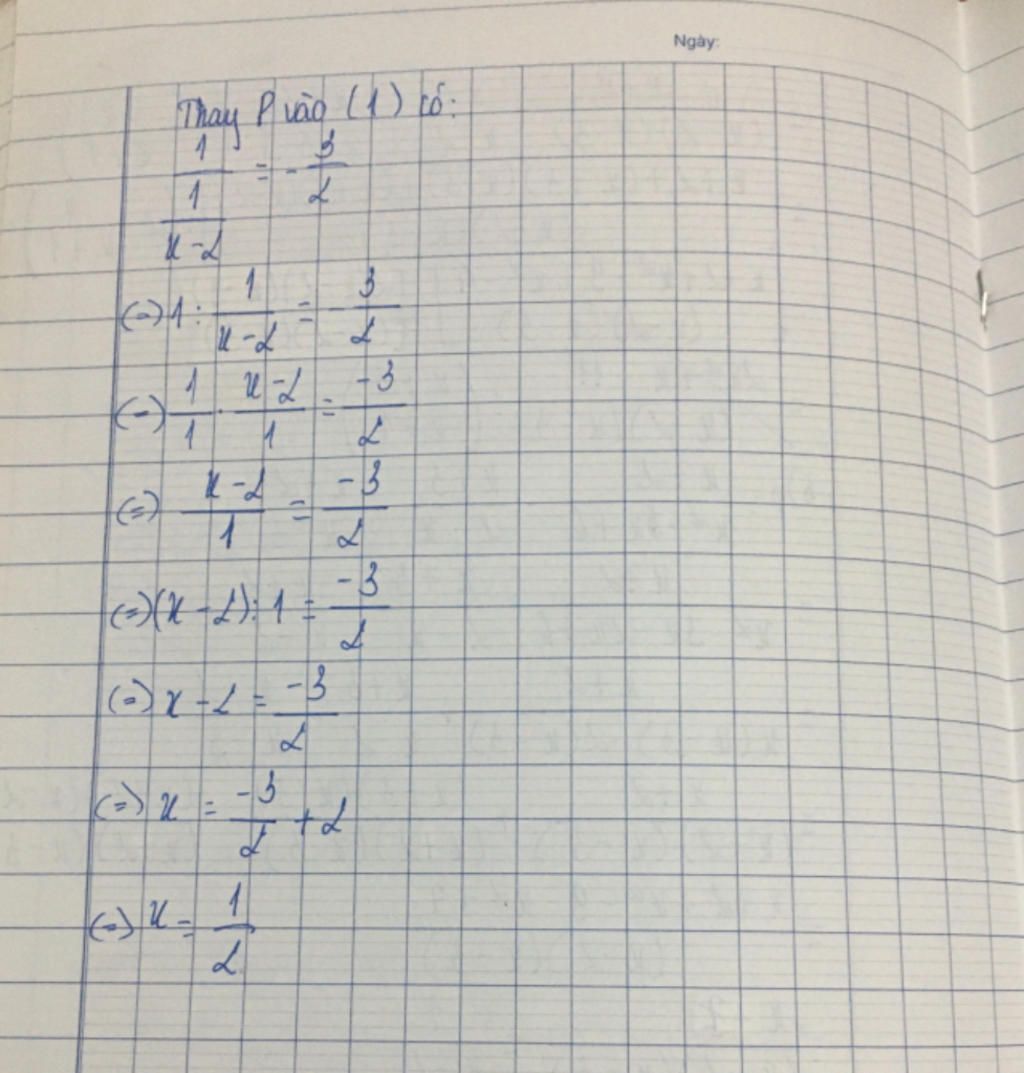 Ngày:
Thay P vào (1) có:
\frac{1}{\frac{1}{x-2}} = -\frac{3}{2}
(=) 1 : \frac{1}{x-2} = -\frac{3}{2}
(=) \frac{1}{1} . \frac{x-2}{1} = \frac{-3}{2}
(=) \frac{x-2}{1} = \frac{-3}{2}
(=) (x-2) : 1 = \frac{-3}{2}
(=) x-2 = \frac{-3}{2}
(=) x = \frac{-3}{2} + 2
(=) x = \frac{1}{2}